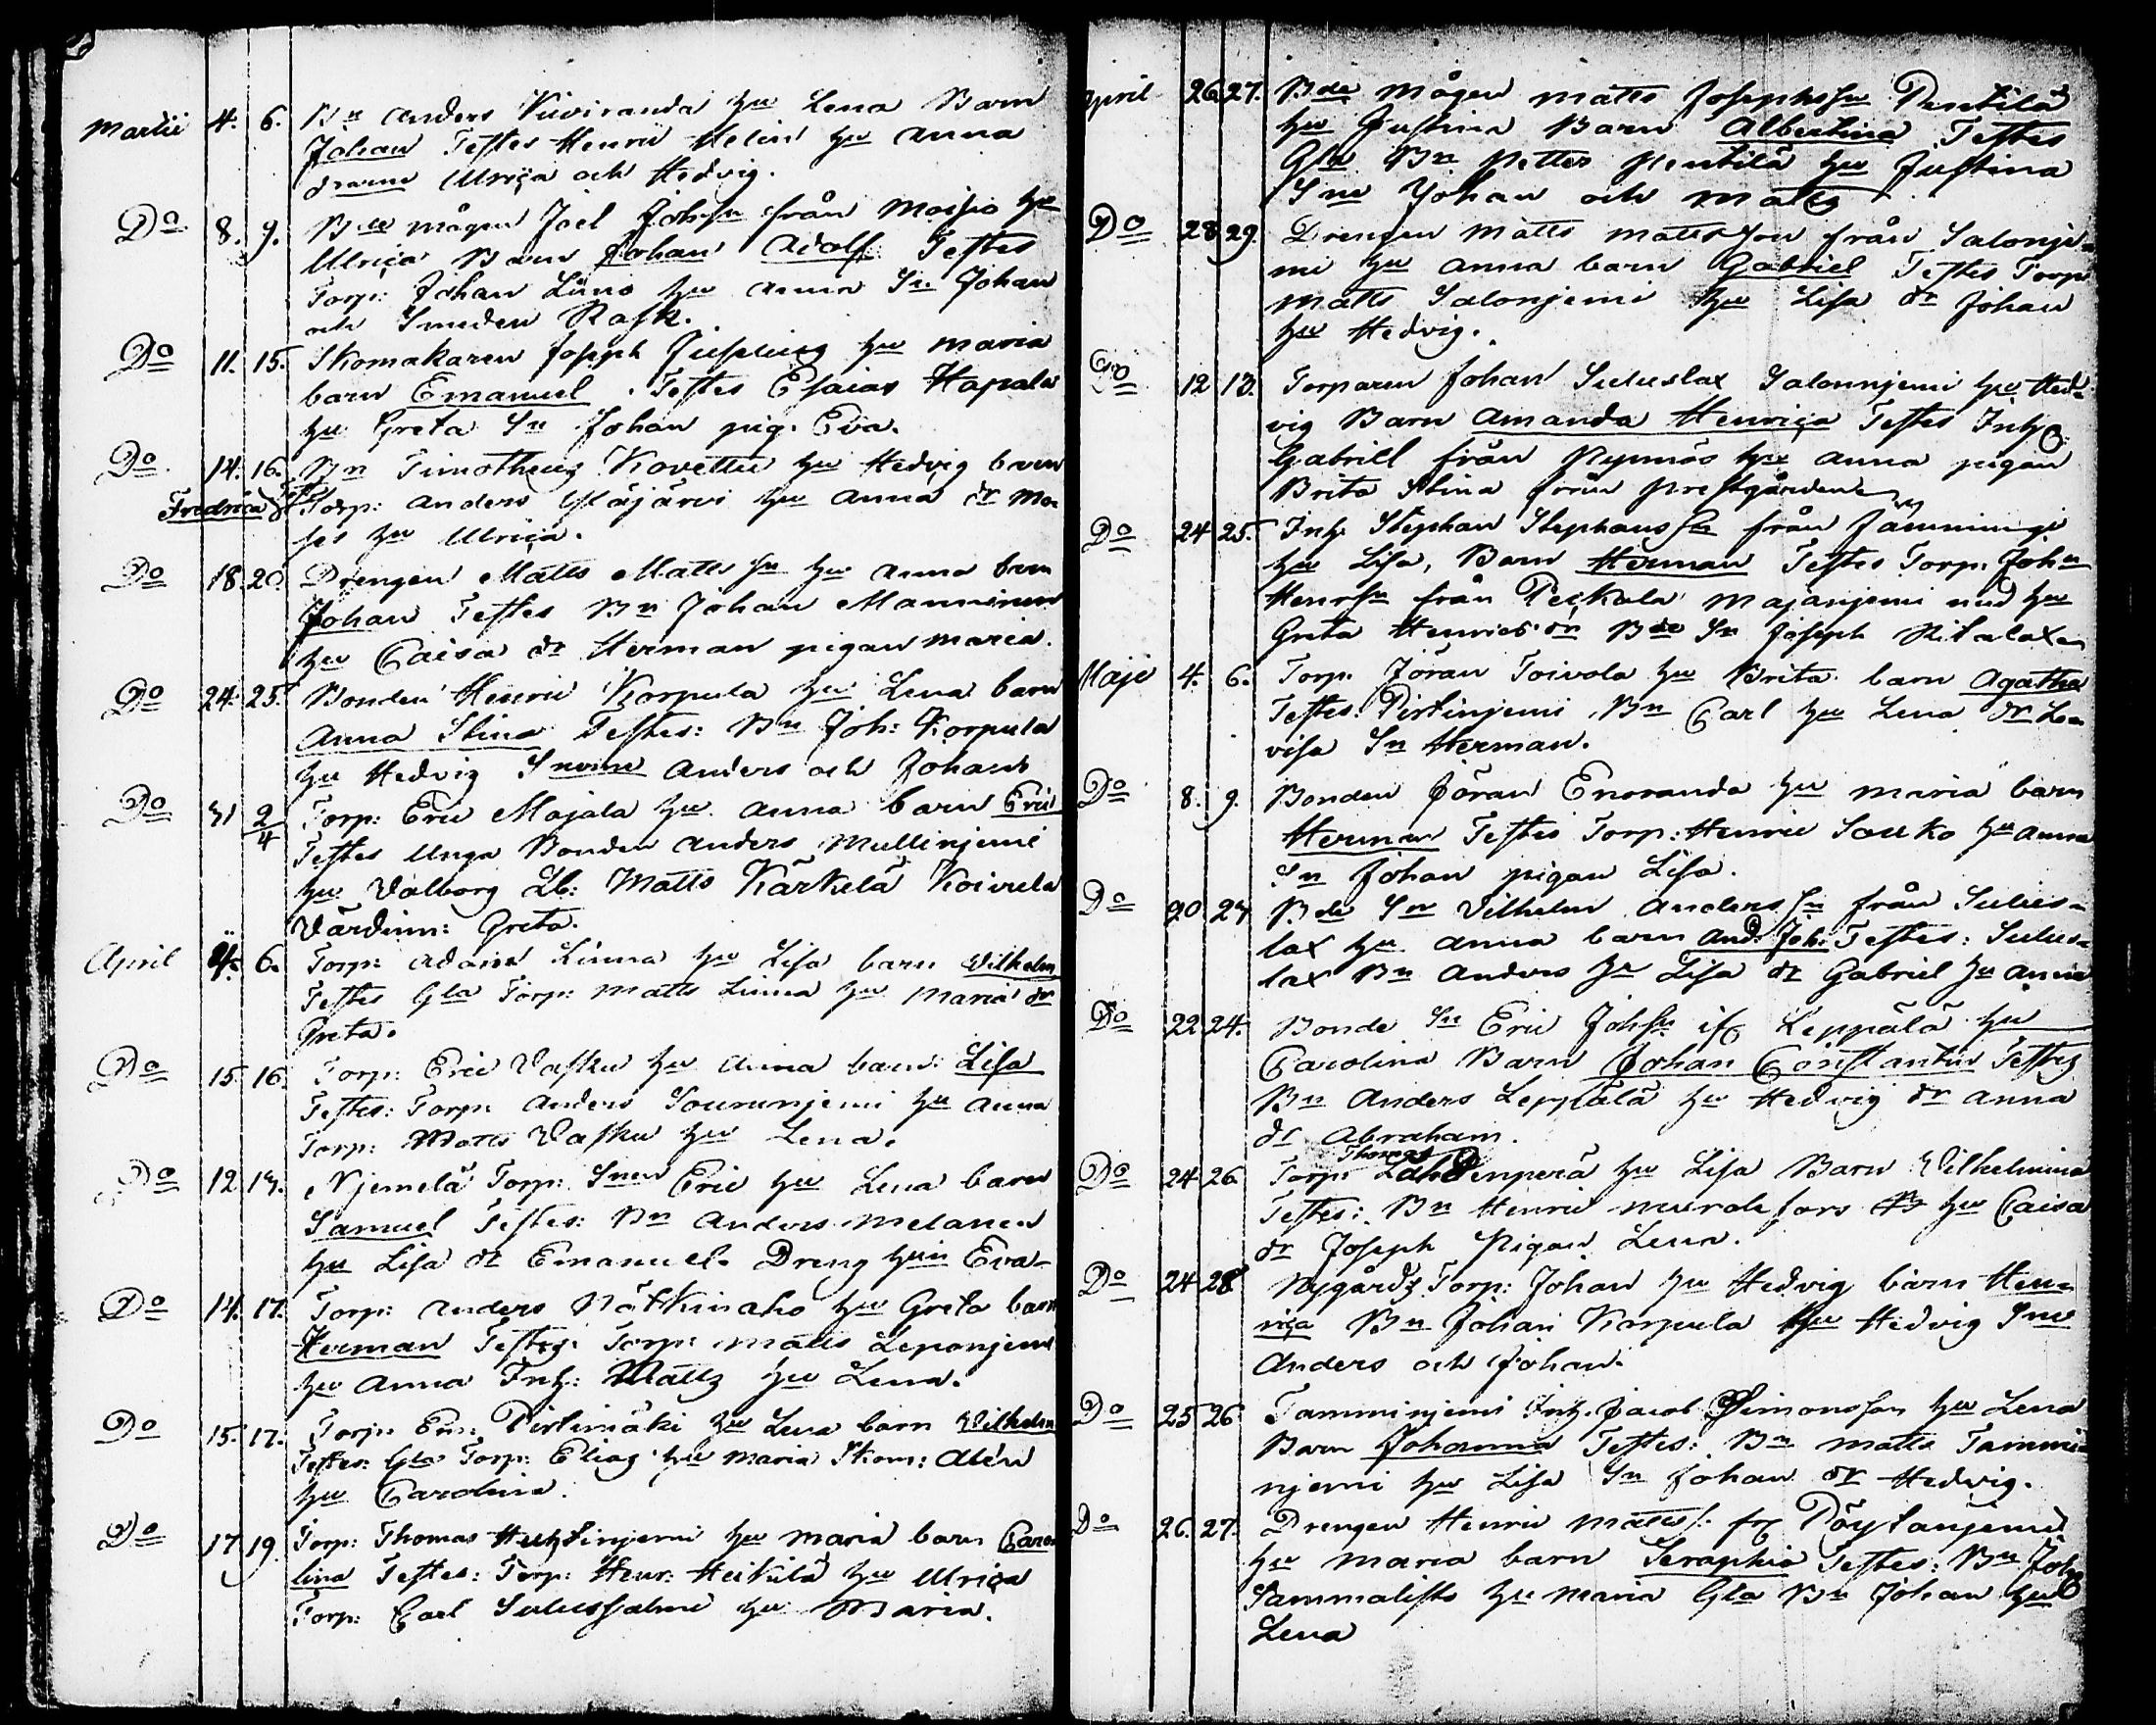 Martii 4. 6. Bn Anders Viiviranda hu Lena Barn
Johan Testes Henric Helin hu Anna
drarne Ulrica och Hedvig.
Do 8. 9. Bde mågen Joel Johsn från Moisio hu
Ulrica Barn Johan Adolf Testes
Torp: Johan Linno hu Anna Sn Johan
och Smeden Rask.
Do 11. 15. Skomakaren Joseph hu Maria
barn Emanuel. Testes Esaias Hapala
hu Greta Sn Johan pig. Eva.
Do 14. 16. Bn Timotheus Kovettu hu Hedvig barn
Fredrica Test Torp: Anders Yläjärvi hu Anna dr Mo-
ses hu Ulrica.
Do 18. 20. Drengen Matts Matts sn hu Anna barn
Johan Testes Bn Johan Manninen
hu Caisa dr Herman pigan Maria.
Do 24. 25. Bonden Henric Korpula hu Lena barn
Anna Stina Testes: Bn Joh: Korpula
hu Hedvig Snerne Anders och Johan
Do 31 2/4 Torp: Eric Majala hu Anna barn Eric
Testes Unga Bonden Anders Mullinjemi
hu Valborg Lb: Matts Kärkelä Koivula
Värdinn: Greta.
April 4. 6. Torp: Adam Linna hu Lisa barn Vilhelm
Testes Gla Torp: Matts Linna hu Maria dr
Greta.
Do 15. 16. Torp: Eric Vasku hu Anna barn Lisa
Testes: Torp: Anders Sourunjemi hu Anna
Torp: Matts Vasku hu Lena.
Do 12 14. Njemelä Torp: Snen Eric hu Lena barn
Samuel Testes: Bn Anders Melanen
hu Lisa dr Emanuel. Dreng hun Eva
Do 14. 17. Torp: Anders Pätkinaho hu Greta barn
Herman Testes: Torp: Matts Leponjemi
hu Anna Inh: Matts hu Lena.
Do 15. 17. Torp: Em: Pirtimäki hu Lena barn Vilhelm
Testes: Gla Torp: Elias hu Maria Skom: Alén
hu Carolina.
Do 17 19. Torp: Thomas Huhtinjemi hu Maria barn Caro-
lina Testes: Torp: Henr: Heikilä hu Ulrica
Torp: Carl Sulussalmi hu Maria.
April 26. 27. Bde Mågen Matts Josephssn Pentilä
hu Justina Barn Albertina Testes
Gla Bn Petter Pentilä hu Justina
Sne Johan och Matts
Do 28 29. Drengen Matts Mattsson från Salonje-
mi hu Anna barn Gabriel Testes Torp
Matts Salonjemi hu Lisa dr Johan
hu Hedvig.
Do 12 13. Torparen Johan Suluslax Salonnjemi hu Hed-
vig Barn Amanda Henrica Testes Inh
Gabriell från Nynnäs hu Anna pigan
Brita Stina från Prestgården
Do 24 25. Inh. Stephan Stephanssn från Jämminge
hu Lisa, Barn Herman Testes Torp. John
Henrsn från Peckala Majanjemi med hu
Greta Henricsdr Bde Sn Joseph Ritalax
Maji 4. 6. Torp. Jöran Toivola hu Brita barn Agatha
Testes: Pirtinjemi Bn Carl hu Lena dr Lo-
visa Sn Herman.
Do 8. 9. Bonden Jöran Enoranda hu Maria barn
Herman Testes Torp: Henric Souko hu Anna
Sn Johan pigan Lisa.
Do 20 24 Bde Sn Vilhelm Anderssn från Sulus-
lax hu Anna barn And. Joh: Testes: Sulus-
lax Bn Anders hu Lisa dr Gabriel hu Anna
Do 22. 24. Bonde Sn Eric Johsn if Leppälä hu
Carolina Barn Johan Constantin Testes
Bn Anders Leppälä hu Hedvig dr Anna
dr Abraham.
Do 24 26 Torp: Thomas Lahdenperä hu Lisa Barn Vilhelmina
Testes: Bn Henric fors hu Caisa
dr Joseph Pigan Lena.
Do 24 28 Nygårds Torp: Johan hu Hedvig barn Hen-
rica Bn Johan Korpula hu Hedvig Sne
Anders och Johan.
Do 25 26 Tamminjemi Inh. Jacob Simonsson hu Lena
Barn Johanna Testes: Bn Matts Tammi-
njemi hu Lisa Sn Johan dr Hedvig.
Do 26. 27. Drengen Henric Matts fr Pöytanjemi
hu Maria barn Seraphia Testes: Bn Joh
Sammalisto hu Maria Gla Bn Johan hu
Lena